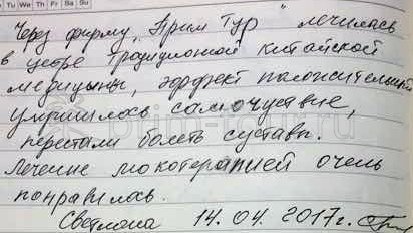 Tu We Th Fr Sa Su
Через фирму „Прим Тур" лечилась
в центре традиционной китайской
медицины, эффект положительный
улучшилось самочуствие,
перестали болеть суставы.
Лечение иглотерапией очень
понравилось.
Светлана 14.04.2017г.
prim-tour.ru